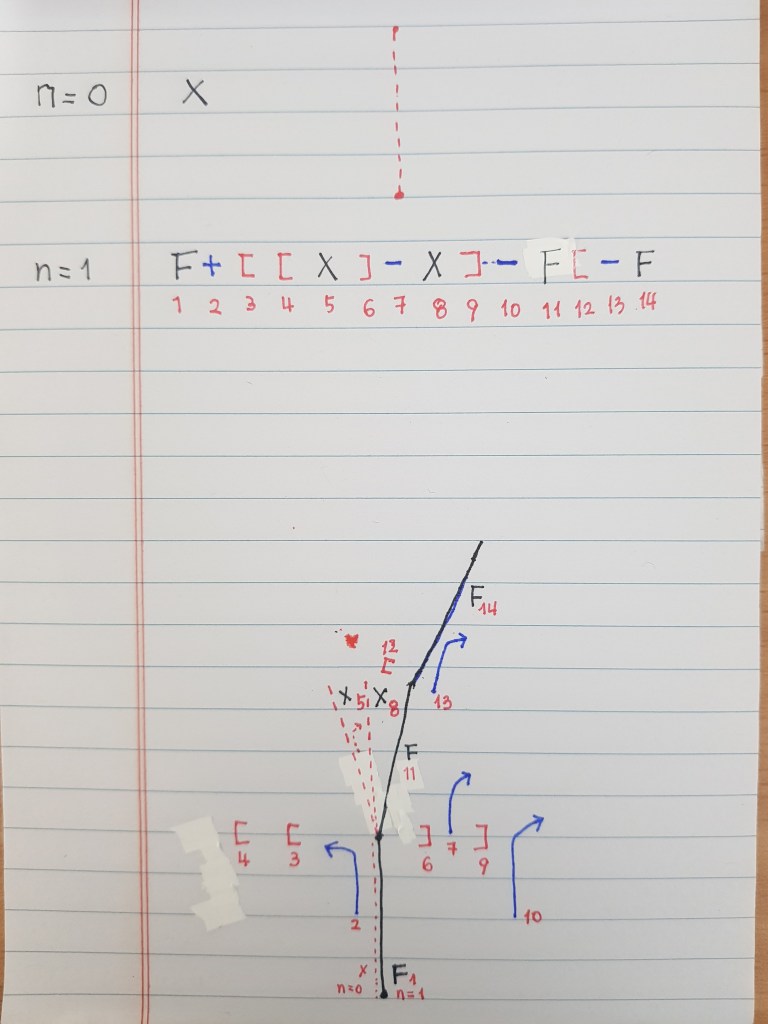 n=0 X
n=1 F+[[X]-X]-F[-F
1 2 3 4 5 6 7 8 9 10 11 12 13 14
F14
12
[
X5 X8 13
F
11
[ [ ] 7 ]
4 3 6 9
2 10
X F1
n=0 n=1